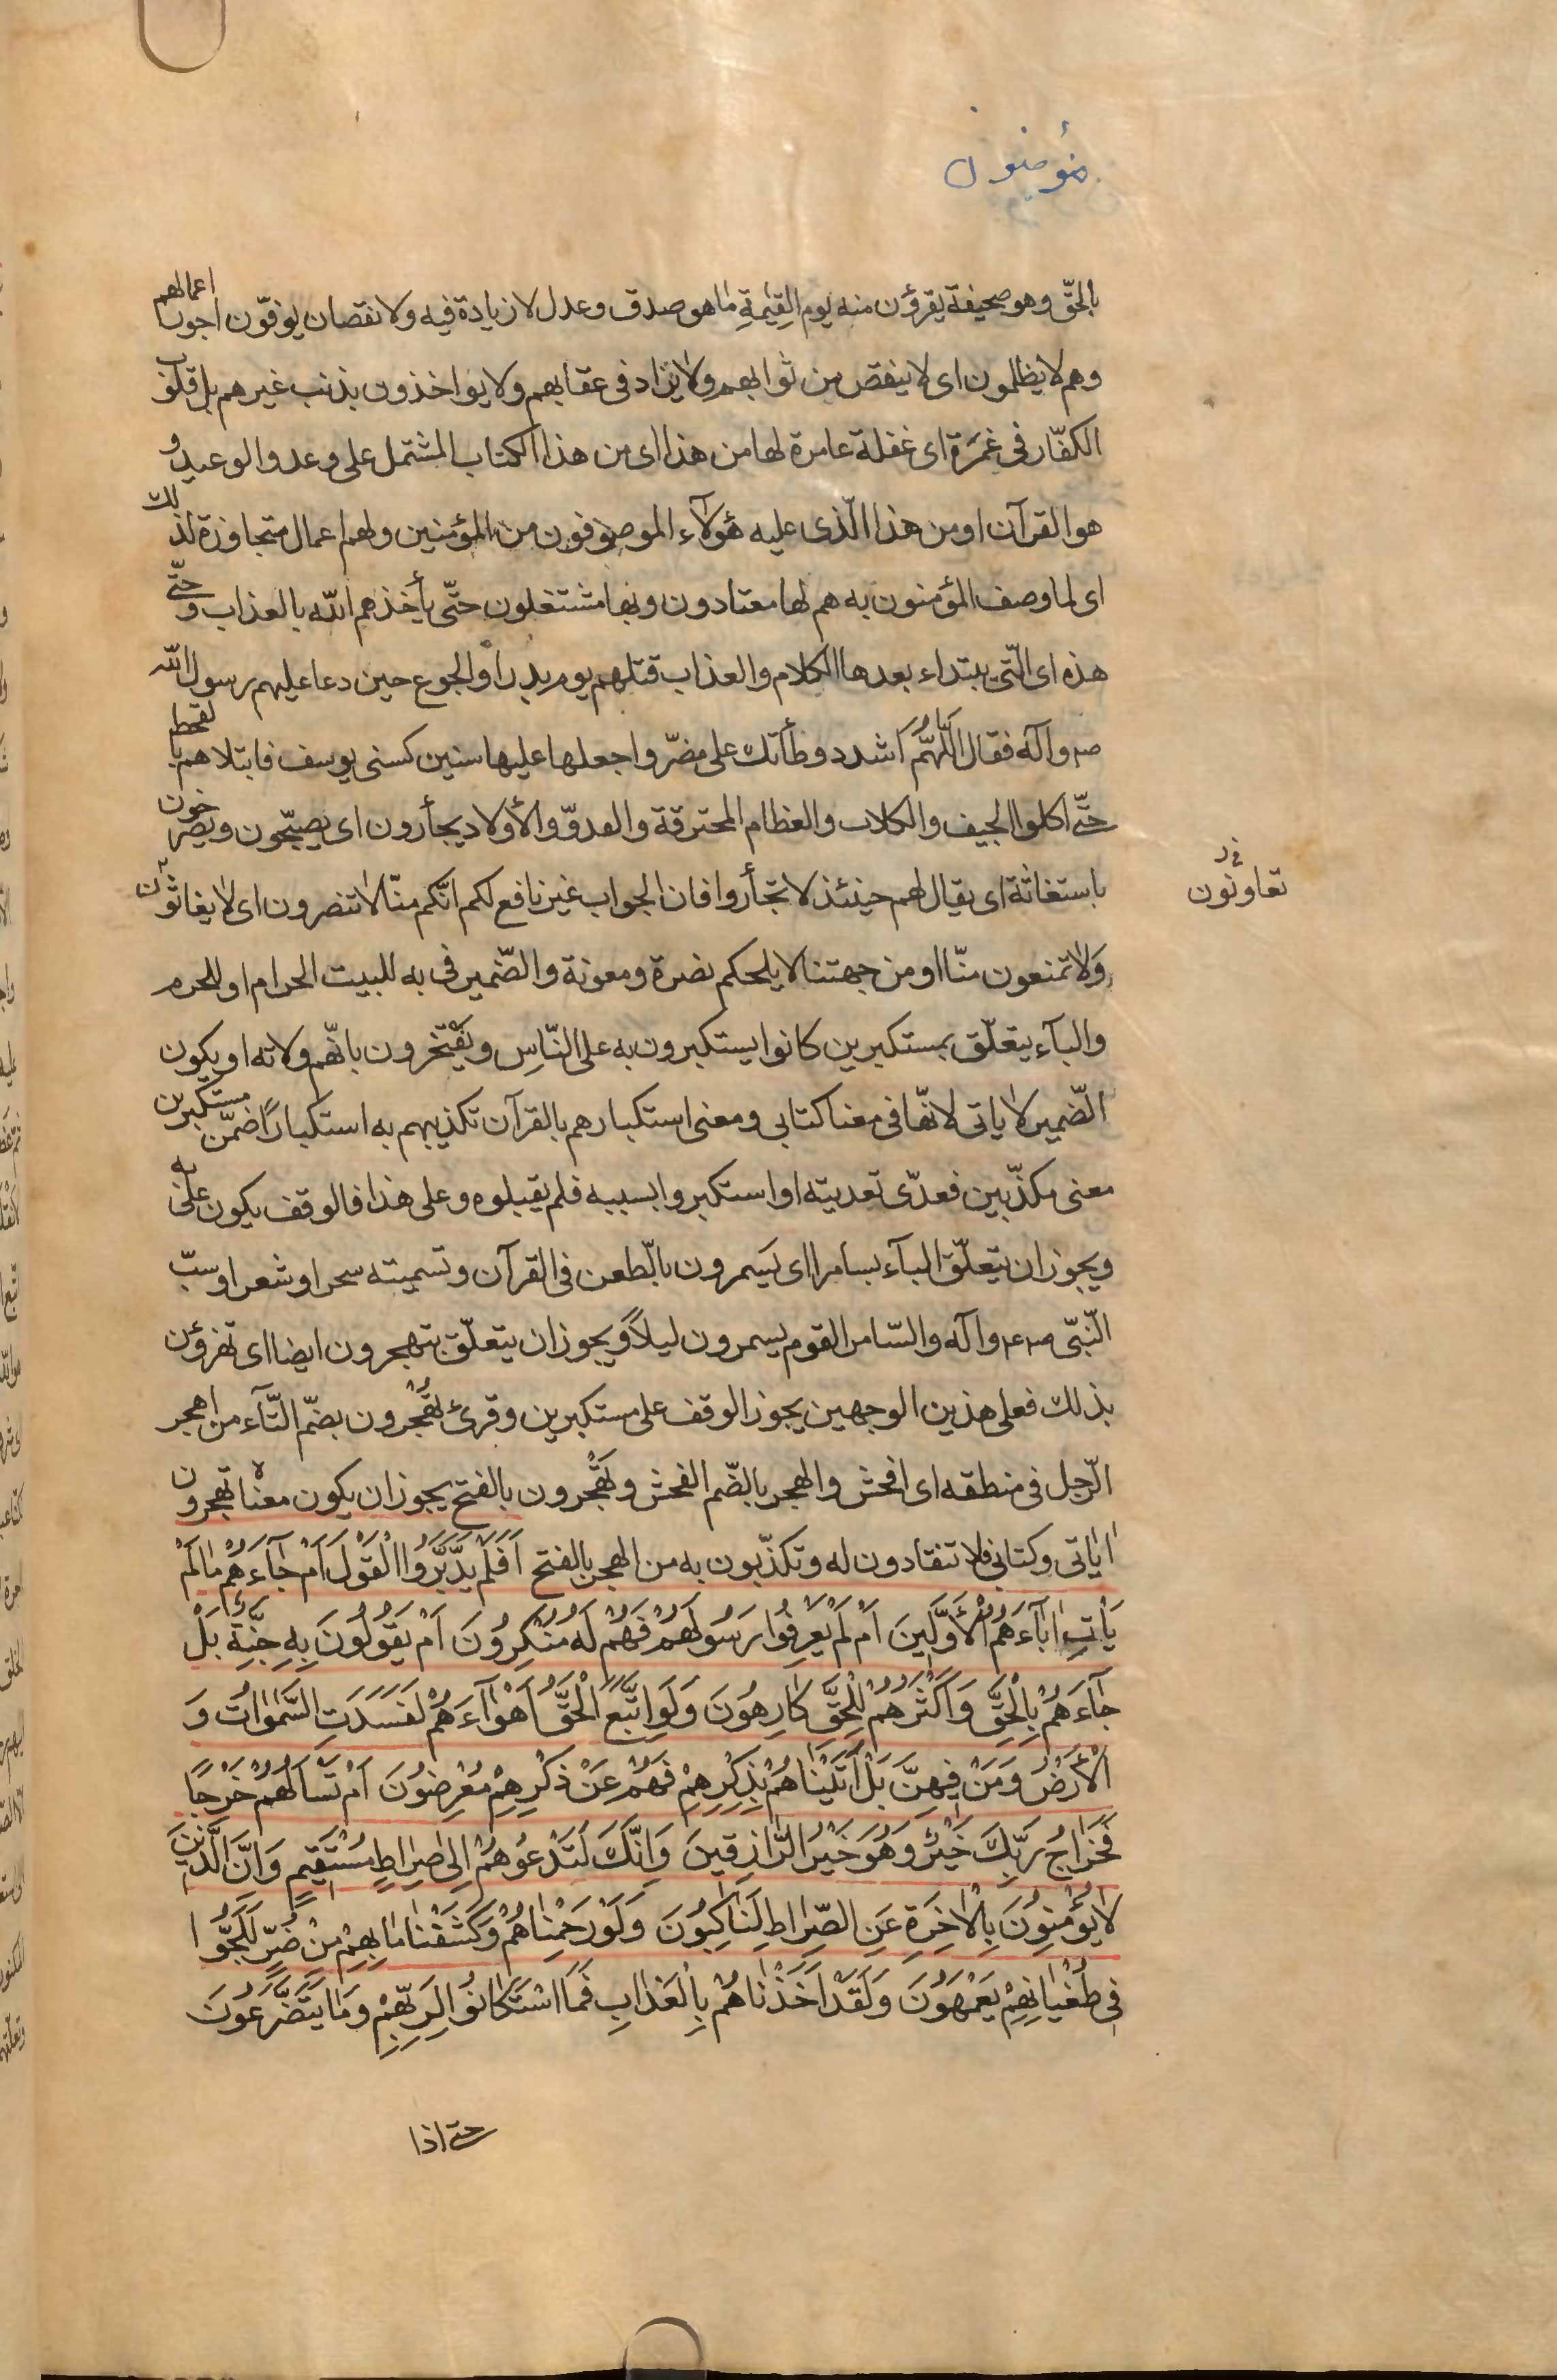 مؤمنون
بالحقّ وهو صحيفة يقرؤن منه يوم القيٰمةِ ما هو صدق وعدل لا زيادة فيه ولا نقصان يوفّون اجور اعمالهم
وهم لا يظلمون اى لا ينقص من ثوابهم ولا يزاد فى عقابهم ولا يواخذون بذنب غيرهم بل قلوب
الكفّار فى غمَرَة اى غفلة غامرة لها من هذا اى من هذا الكتاب المشتمل على وعد والوعيد و
هو القرآن او من هذا الّذى عليه هؤلآء الموصوفون من المؤمنين ولهم اعمال متجاوزة لذلك
اى لما وصف المؤمنون به هم لها معتادون وبها مشتغلون حتّى يأخذهم اللّه بالعذاب وحتّى
هذه اى الّتى يبتداء بعدها الكلام والعذاب قتلهم يوم بدر او الجوع حين دعا عليهم رسول اللّه
صم وآله فقال اللّهمّ اشدد وطأتك على مضرّ واجعلها عليها سنين كسنى يوسف فابتلاهم بالقحط
حتّى اكلوا الجيف والكلاب والعظام المحترقة والقدّ والأولاد يجأرون اى يصيّحون ويصرخون
باستغاثة اى يقال لهم حينئذ لا تجأروا فان الجواب غير نافع لكم انّكم منّا لا تنصرون اى لا يغاثون
تعاونون
ولا تمنعون منّا او من جهتنا لا يلحكم نصرة ومعونة والضّمير فى به للبيت الحرام او للحرم
والبآء يتعلّق بمستكبرين كانوا يستكبرون به على النّاسِ ويفتخرون بانّهم ولاته او يكون
الضّمير لاياتى لانّها فى معنا كتابى ومعنى استكبارهم بالقرآن تكذيبهم به استكبارًا ضمّن مستكبرين
معنى مكذّبين فعدّى تعديته او استكبروا بسببه فلم يقبلوه وعلى هذا فالوقف يكون على به
ويجوز ان يتعلّق البآء بسامرا اى يَسمرون بالّطعن فى القرآن وتسميته سحر او شعر او سبّ
النّبّى صم وآله والسّامر القوم يسمرون ليلاً ويجوز ان يتعلّق بتهجرون ايضا اى تهزؤن
بذلك فعلى هذين الوجهين يجوز الوقف على مستكبرين وقرئ تُهْجرون بضمّ التّآء من اهجر
الّرجل فى منطقه اى افحش والهجر بالضّم الفحش وتَهْجرون بالفتح يجوز ان يكون معناه تهجرون
اٰياتى وكتابى فلا تنقادون له وتكذّبون به من الهجر بالفتح اَفَلَمْ يَدَّبَّرُوا الْقَوْلَ اَمْ جٰآءَهُمْ مٰا لَمْ
يَأْتِ اٰبٰآءَهُمُ الْأَوَّلينَ اَمْ لَمْ يَعْرِفُوا رَسُولَهُمْ فَهُمْ لَهُ مُنْكِرُونَ اَمْ يَقُولُونَ بِهِ جِنَّةٌ بَلْ
جٰآءَهُمْ بِالْحَقِّ وَاَكْثَرُهُمْ لِلْحَقِّ كٰارِهُونَ وَلَوِ اتَّبَعَ الْحَقُّ اَهْوٰآءَهُمْ لَفَسَدَتِ السَّمٰوٰاتُ وَ
الْأَرْضُ وَمَنْ فيهِنَّ بَلْ اَتَيْنٰاهُمْ بِذِكْرِهِمْ فَهُمْ عَنْ ذِكْرِهِمْ مُعْرِضُونَ اَمْ تَسْأَلُهُمْ خَرْجًا
فَخَرٰاجُ رَبِّكَ خَيْرٌ وَهُوَ خَيْرُ الرّٰازِقينَ وَاِنَّكَ لَتَدْعُوهُمْ اِلٰى صِرٰاطٍ مُسْتَقيمٍ وَاِنَّ الَّذينَ
لٰا يُؤْمِنُونَ بِالْاٰخِرَةِ عَنِ الصِّرٰاطِ لَنٰاكِبُونَ وَلَوْ رَحِمْنٰاهُمْ وَكَشَفْنٰا مٰا بِهِمْ مِنْ ضُرٍّ لَلَجُّوا
فى طُغْيٰانِهِمْ يَعْمَهُونَ وَلَقَدْ اَخَذْنٰاهُمْ بِالْعَذٰابِ فَمَا اسْتَكٰانُوا لِرَبِّهِمْ وَمٰا يَتَضَرَّعُونَ
حتى اذا